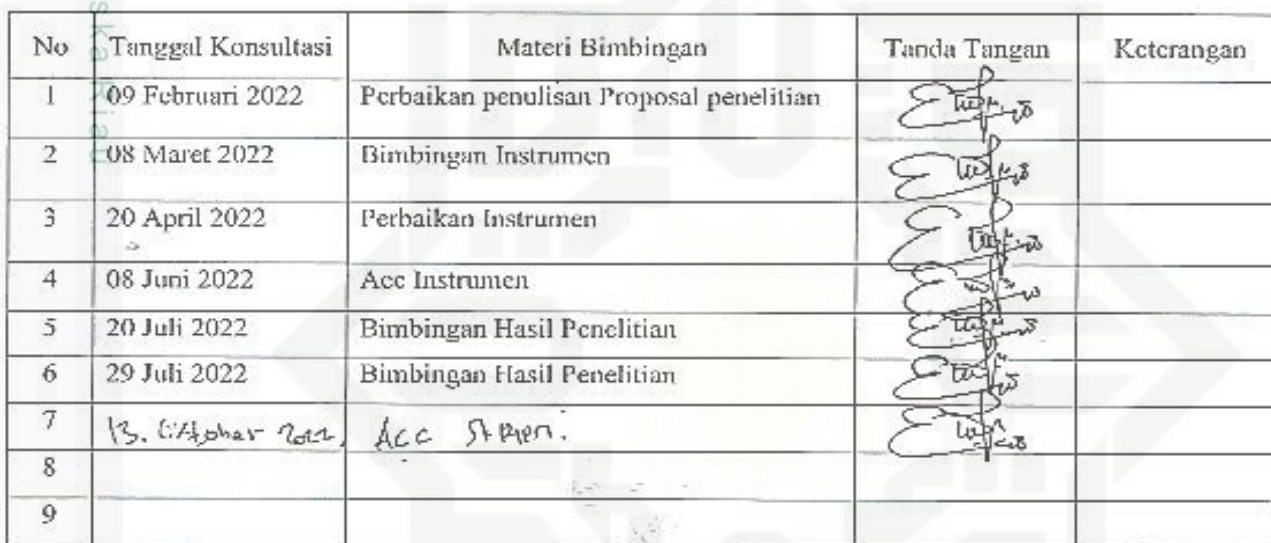 ska Riau
No Tanggal Konsultasi Materi Bimbingan Tanda Tangan Keterangan
1 09 Februari 2022 Perbaikan penulisan Proposal penelitian
2 08 Maret 2022 Bimbingan Instrumen
3 20 April 2022 Perbaikan Instrumen
4 08 Juni 2022 Acc Instrumen
5 20 Juli 2022 Bimbingan Hasil Penelitian
6 29 Juli 2022 Bimbingan Hasil Penelitian
7 13. Oktober 2022, Acc Skripsi.
8
9